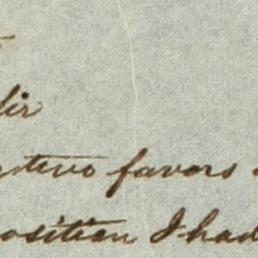 Sir
two favors
position I had